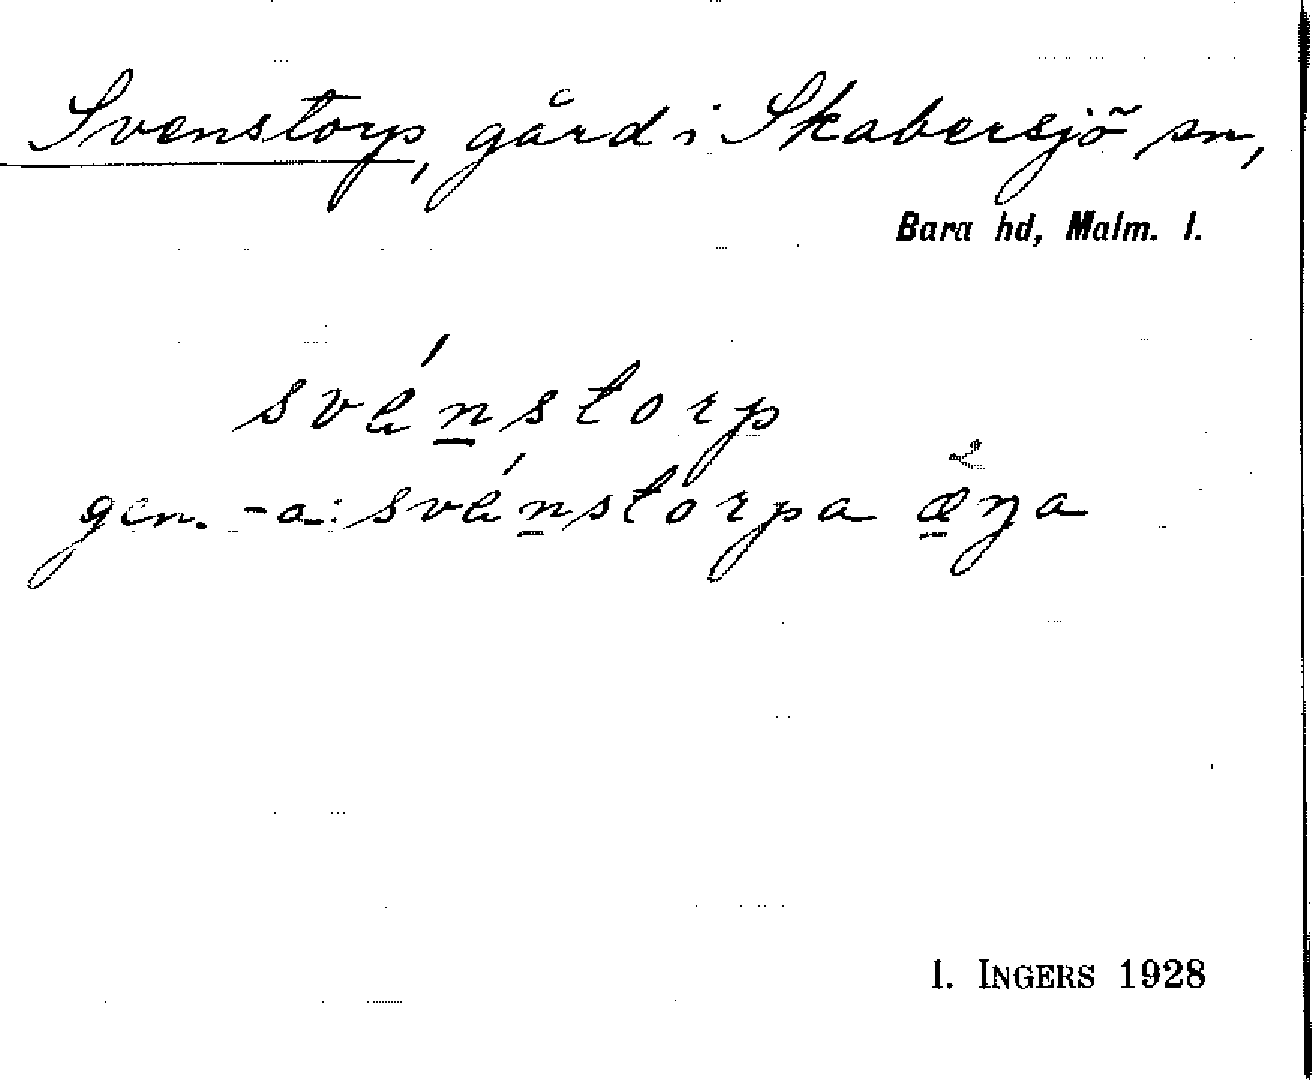 Svenstorp, gård i Skabersjö sn,
Bara hd, Malm. l.
svénstorp
gen. -a: svénstorpa æŋa
I. INGERS 1928